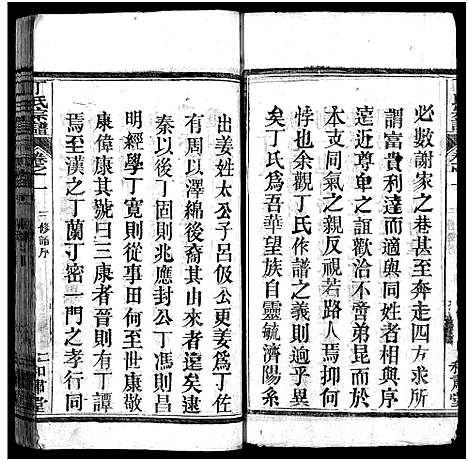 必數謝家之巷甚至奔走四方求所
謂富貴利達而適與同姓者相與序
遠近尊卑之誼歡洽不啻弟昆而於
本支同氣之親反視若路人焉抑何
悖也余觀丁氏作譜之義則逈乎異
矣丁氏爲吾華望族自靈毓濟陽系
出姜姓太公子呂伋公更姜爲丁佐
有周以澤綿後裔其由來者遠矣逮
秦以後丁固則兆應封公丁馮則昌
明經學丁寬則從事田何至世康敬
康偉康其號曰三康者晉則有丁譚
焉至漢之丁蘭丁密一門之孝行同
丁氏宗譜
卷之一
三修譜序
二和肅堂